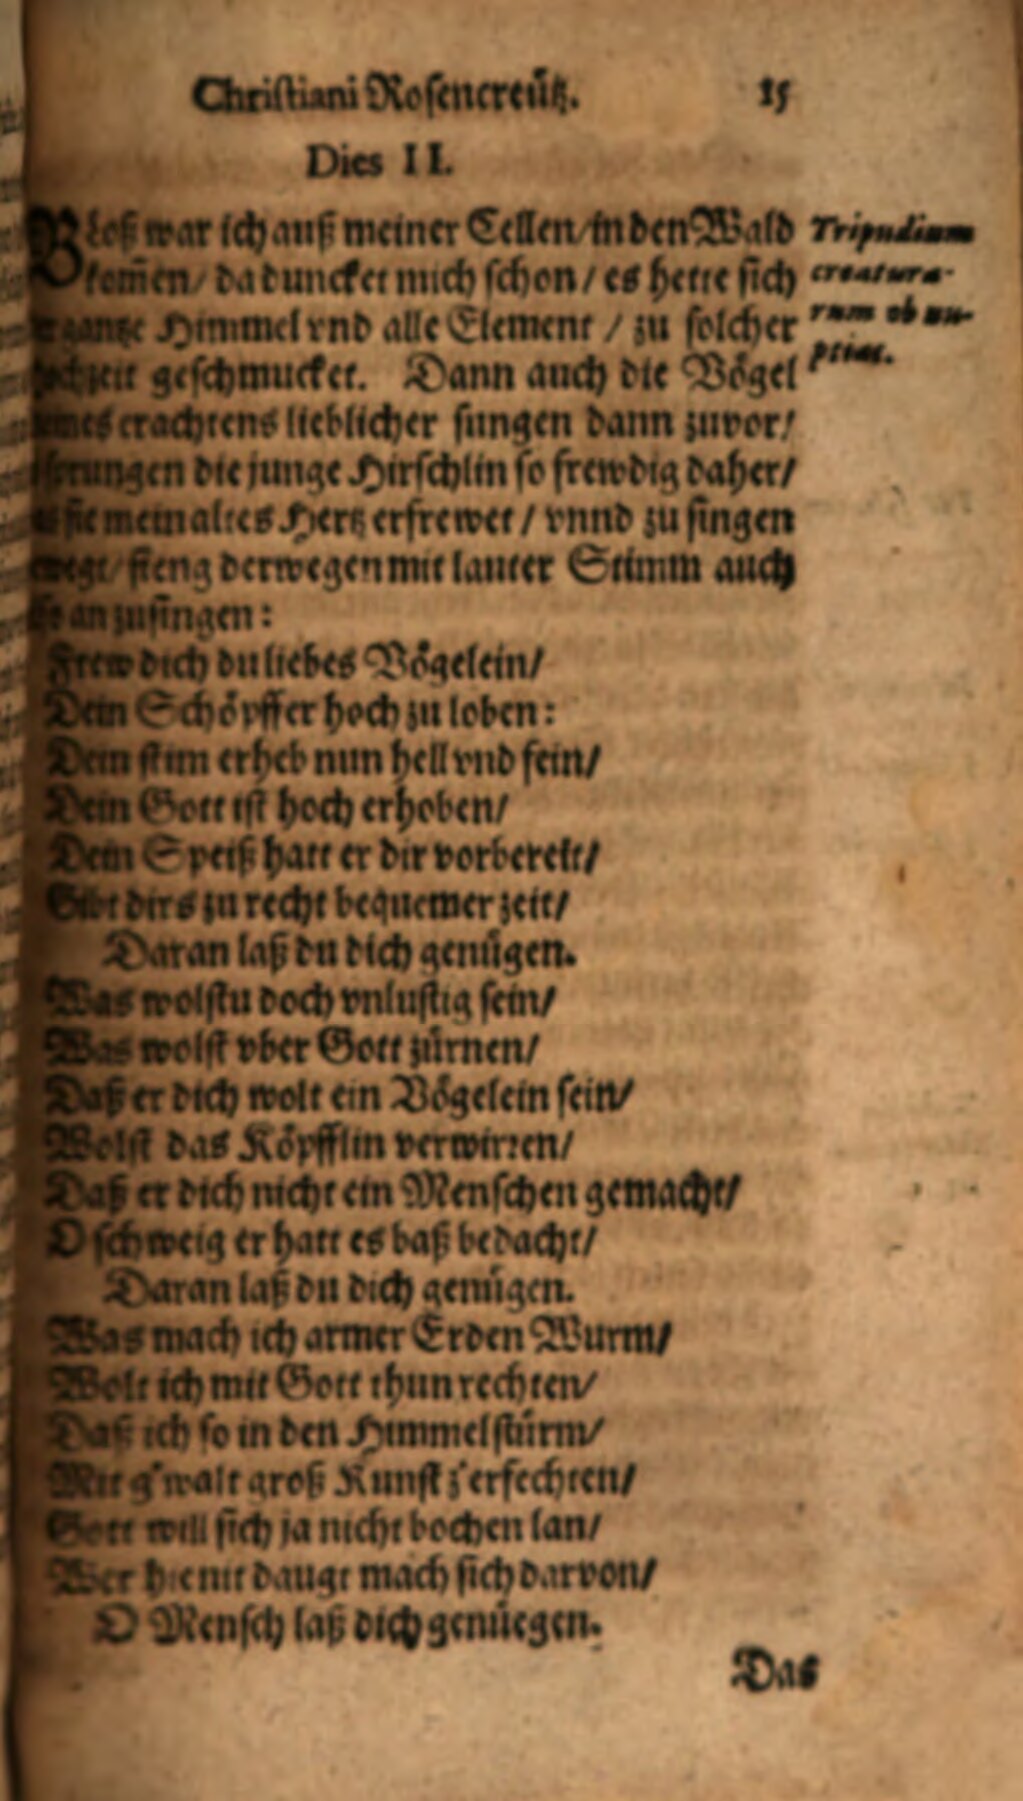 Christiani Rosencreütz. 15
Dies II.
Bloß war ich auß meiner Cellen/in den Wald
kom̃en/ da duncket mich schon/ es hette sich
ganze Himmel vnd alle Element / zu solcher
geschmucket. Dann auch die Vögel
erachtens lieblicher sungen dann zuvor/
sprungen die junge Hirschlin so frewdig daher/
sie mein altes Hertz erfrewet / vnnd zu singen
fieng derwegen mit lauter Stimm auch
an zusingen:
Frew dich du liebes Vögelein/
Dein Schöpffer hoch zu loben:
Dein stim erheb nun hell vnd fein/
Dein Gott ist hoch erhoben/
Dein Speiß hatt er dir vorbereit/
Gibt dirs zu recht bequemer zeit/
Daran laß du dich genügen.
Was wolstu doch vnlustig sein/
Was wolst vber Gott zürnen/
Daß er dich wolt ein Vögelein sein/
Wolst das Köpfflin verwirren/
Daß er dich nicht ein Menschen gemacht/
O schweig er hatt es baß bedacht/
Daran laß du dich genügen.
Was mach ich armer Erden Wurm/
Wolt ich mit Gott thun rechten/
Daß ich so in den Himmel stürm/
Mit g'walt groß Kunst z'erfechten/
Gott will sich ja nicht bochen lan/
Wer hienit daugt mach sich darvon/
O Mensch laß dich genüegen.
Das
Tripudium
creatura-
rum ob nu-
ptias.